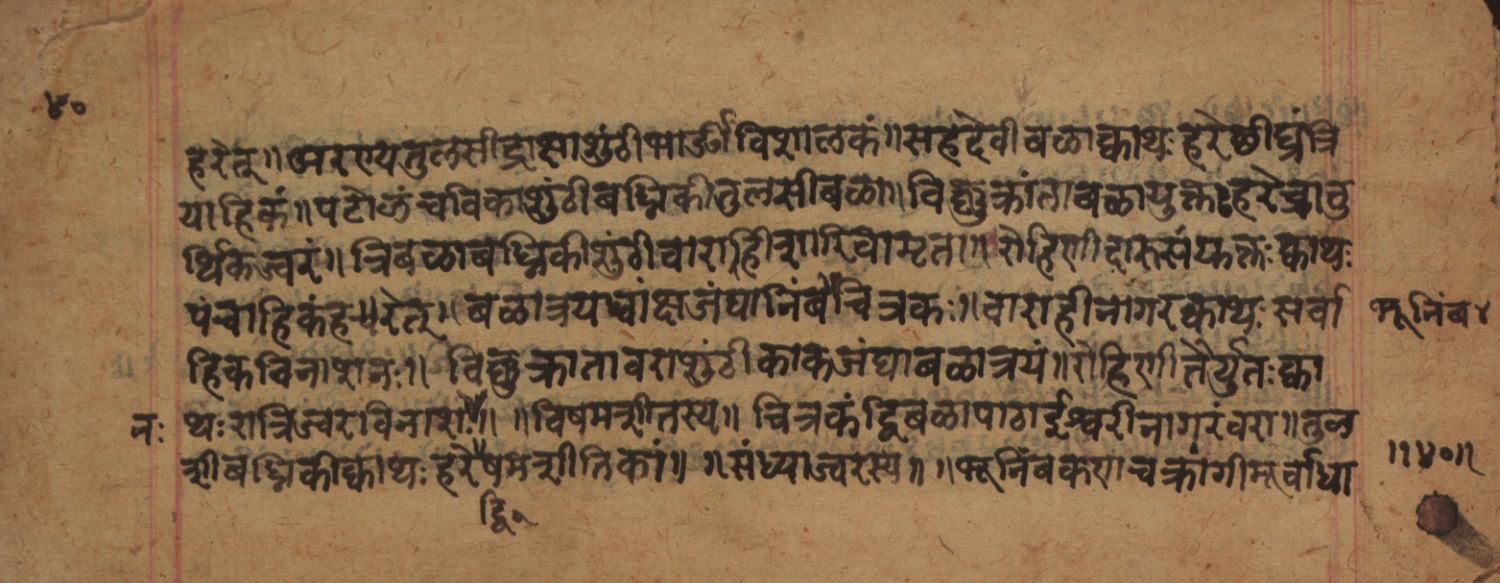 ४०
हरेत्॥ अरण्यतुलसीद्राक्षाशुंठीभार्ङ्गीविशालकं॥ सहदेवीबळाक्वाथः हरेछीघ्रंत्रि
याहिकं॥ पटोळंचविकाशुंठीबध्निकीतुलसीबळा॥ विष्णुक्रांताबळायुक्तः हरेच्चातु
र्थिकज्वरं॥ त्रिबळाबध्निकीशुंठीवाराहीशारिवामृता॥ रोहिणीदारुसंयुक्तः क्वाथः
पंचाहिकंहरेत्॥ बळात्रयध्वांक्षजंघानिंबचित्रकः॥ वाराहीनागरक्वाथः सर्वा
भूनिंब ४
हिकविनाशनः॥ विष्णुक्रातावराशुंठीकाकजंघाबळात्रयं॥ रोहिणीतैर्युतः क्वा
थः रात्रिज्वरविनाश॥ ॥विषमशीतस्य॥ चित्रकंद्विबळापाठाईश्वरीनागरंवरा॥ तुल
नः
शीबध्निकीक्वाथः हरेषमशीतिकां॥ ॥संध्याज्वरस्य॥ ॥भूनिंबकणाचक्रांगीमूर्वाधा
द्वि
॥४०॥